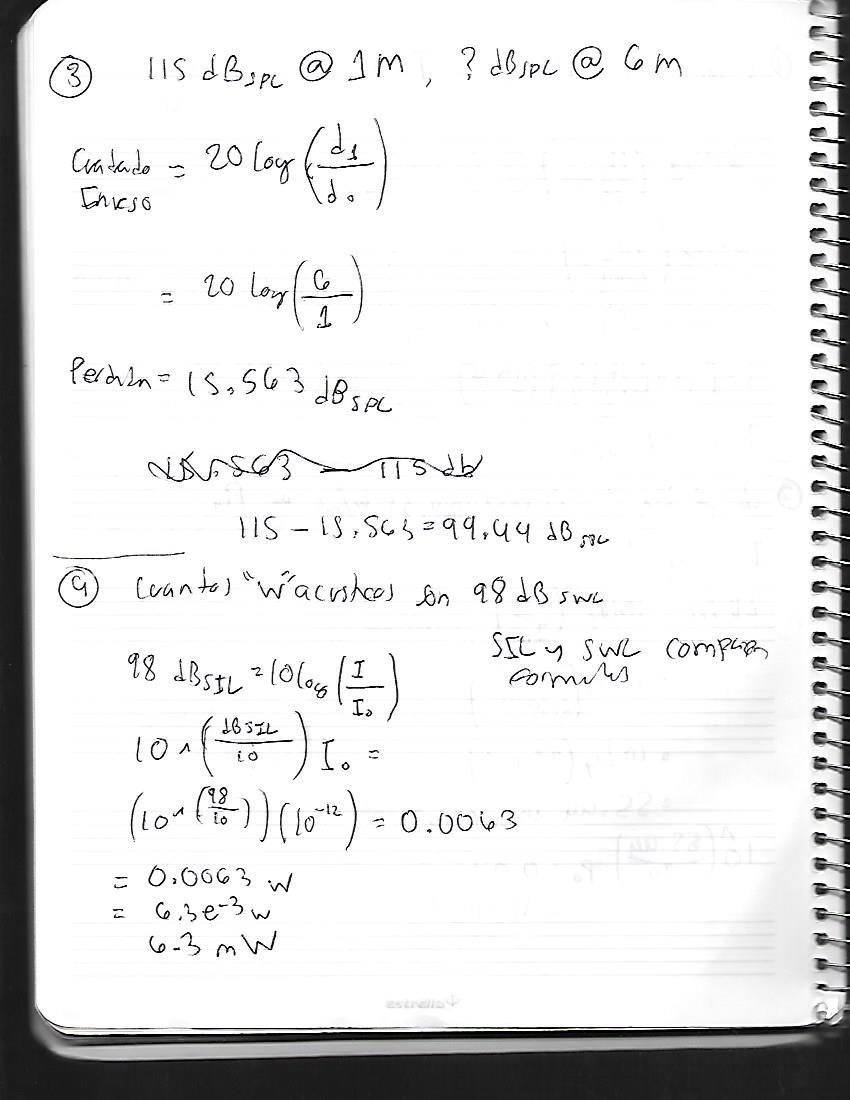 ③ 115 dB SPL @ 1m, ? dB SPL @ 6m
Cuadrado = 20 log (d₁/d₀)
Inverso
= 20 log (6/1)
= 15.563 dB SPL
115 - 15.563 = 99.44 dB SPL
④ Cuantos "W" acusticos son 98 dB SWL
SIL y SWL comparten
formulas
98 dB SIL = 10 log (I/I₀)
10 ^ (dBSIL/10) I₀ =
(10 ^ (98/10)) (10⁻¹²) = 0.0063
= 0.0063 W
= 6.3e⁻³ W
6.3 mW
estrella